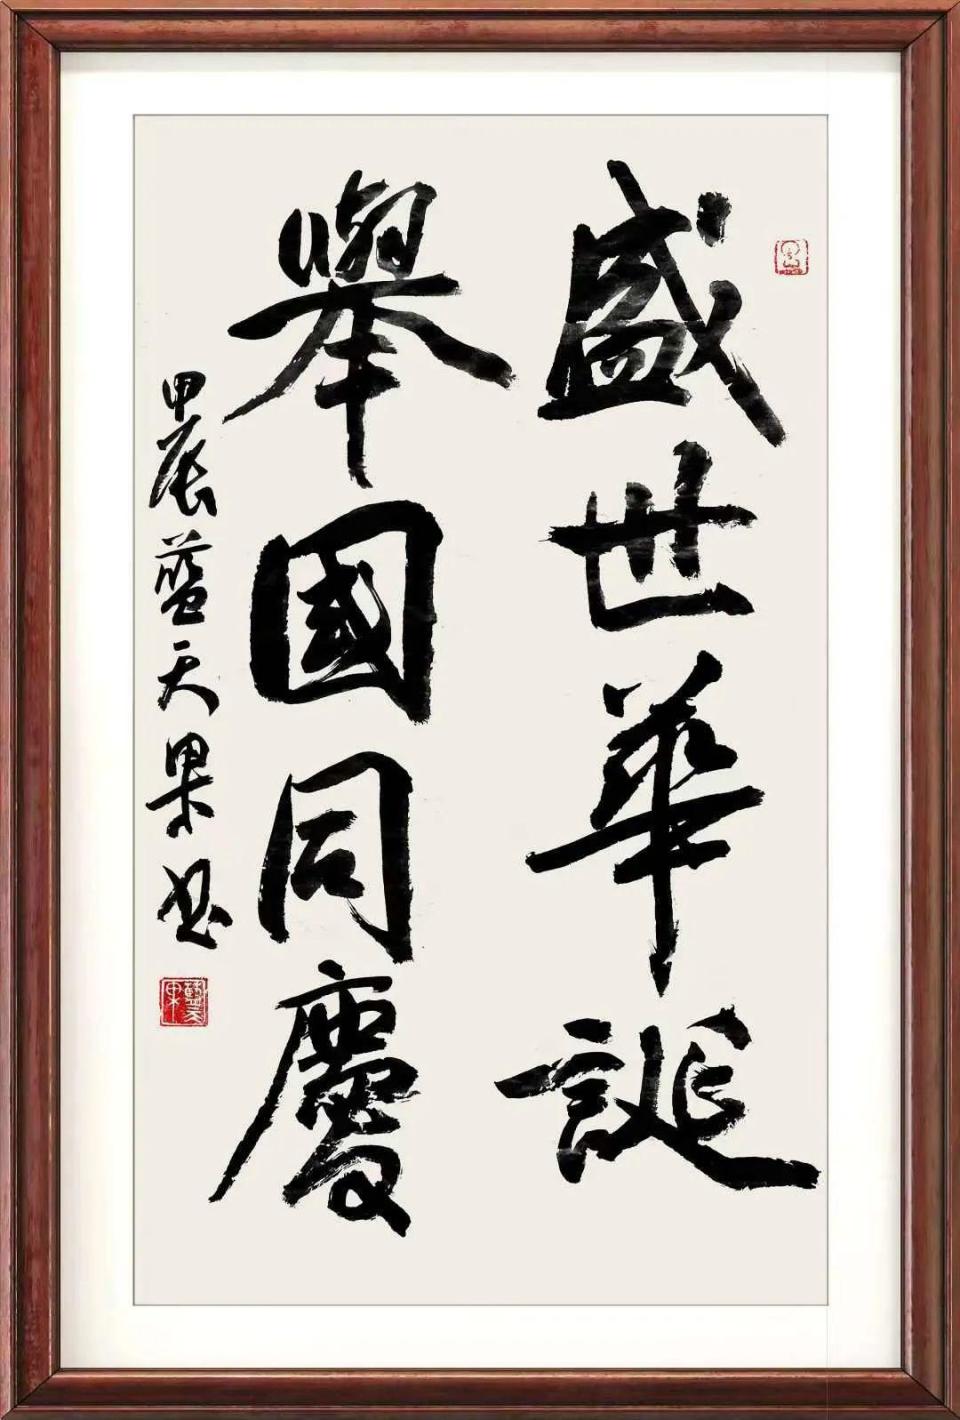 盛世華誕
舉國同慶
甲辰藍天果书